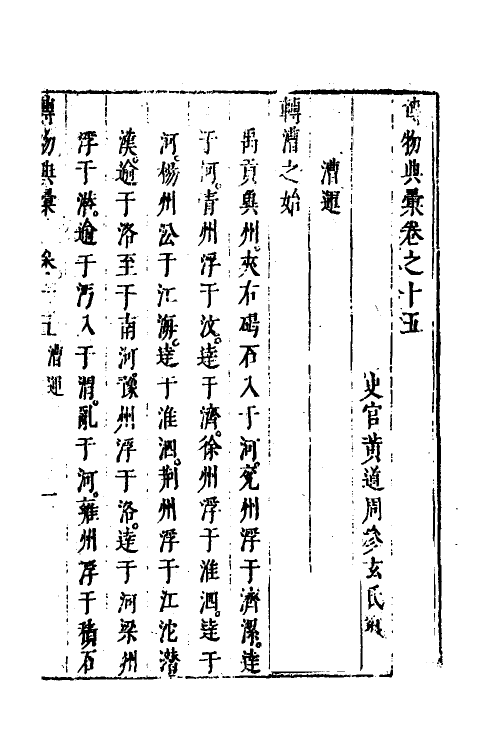 博物典彙卷之十五
史官黃道周參玄氏纂
漕運
轉漕之始
禹貢兾州夾右碣石入于河兖州浮于濟漯達
于河青州浮于汶達于濟徐州浮于淮泗達于
河楊州公于江海達于淮泗荆州浮于江沱潜
漢逾于洛至于南河豫州浮于洛達于河梁州
浮于潜逾于沔入于渭亂于河雍州浮于積石
博物典彙 卷十五 漕運 一